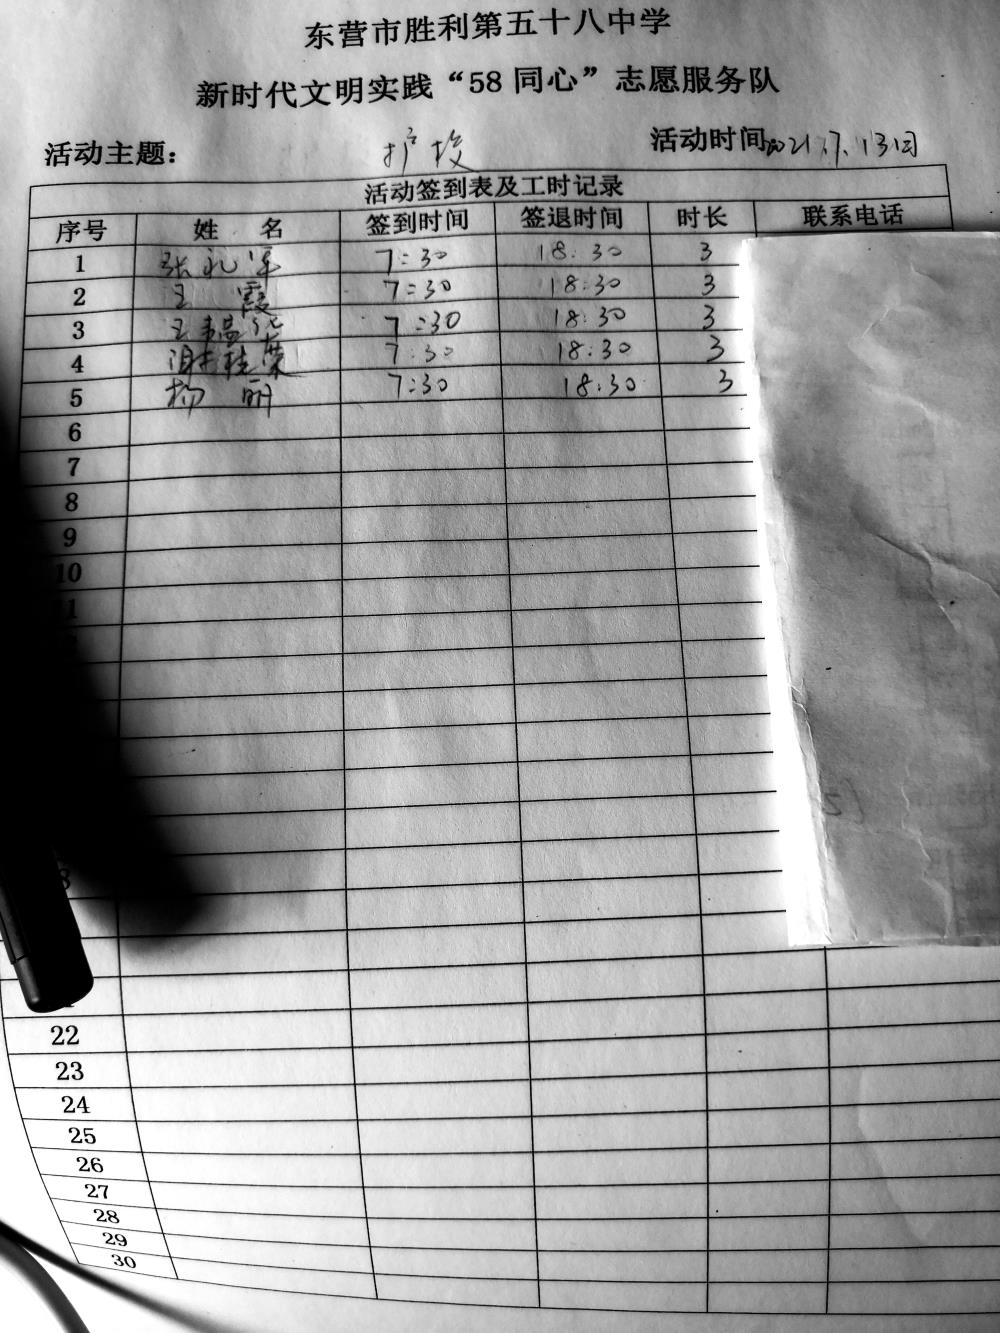 东营市胜利第五十八中学
新时代文明实践“58 同心”志愿服务队
活动主题： 护校 活动时间 2021.7.13日
活动签到表及工时记录
序号 姓 名 签到时间 签退时间 时长 联系电话
1 张礼军 7:30 18:30 3
2 王 霞 7:30 18:30 3
3 王 7:30 18:30 3
4 谢桂荣 7:30 18:30 3
5 杨 丽 7:30 18:30 3
6
7
8
9
10
22
23
24
25
26
27
28
29
30